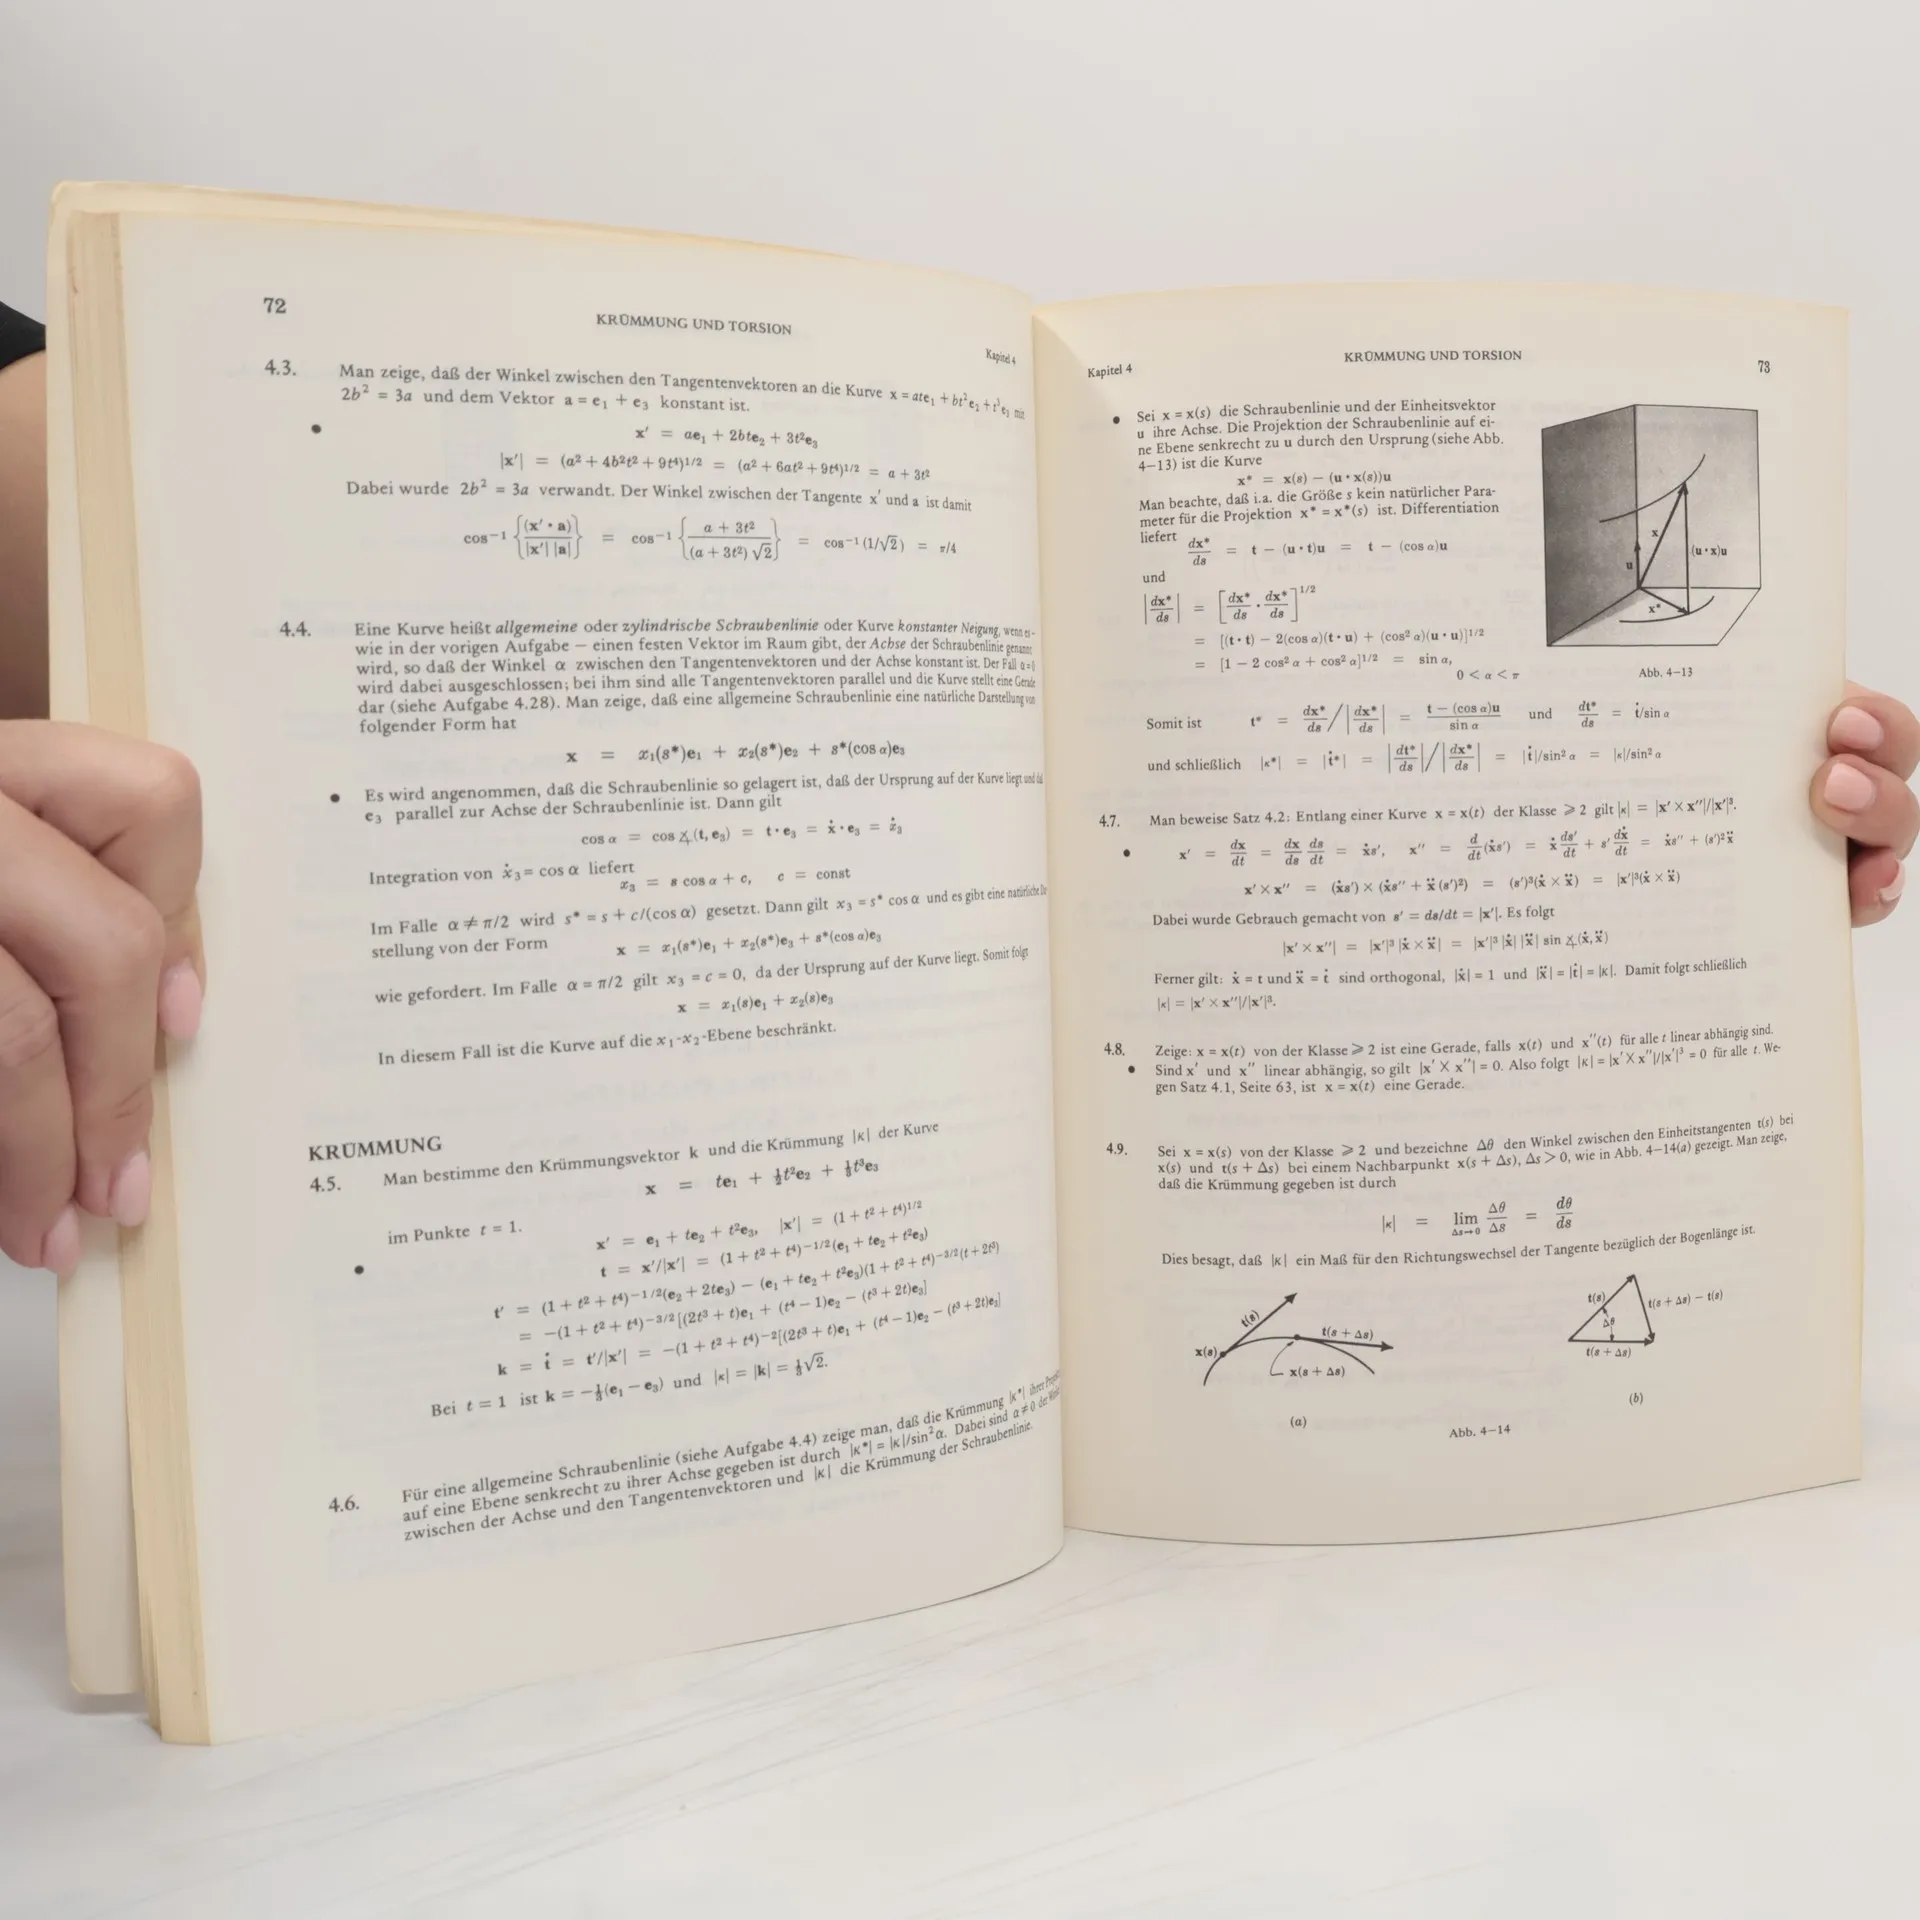 72
KRÜMMUNG UND TORSION
Kapitel 4
4.3. Man zeige, daß der Winkel zwischen den Tangentenvektoren an die Kurve x = ate₁ + bt²e₂ + t³e₃ mit
2b² = 3a und dem Vektor a = e₁ + e₃ konstant ist.
• x′ = ae₁ + 2bte₂ + 3t²e₃
|x′| = (a² + 4b²t² + 9t⁴)^1/2 = (a² + 6at² + 9t⁴)^1/2 = a + 3t²
Dabei wurde 2b² = 3a verwandt. Der Winkel zwischen der Tangente x′ und a ist damit
cos⁻¹ {(x′ · a) / |x′| |a|} = cos⁻¹ {a + 3t² / (a + 3t²) √2} = cos⁻¹ (1/√2) = π/4
4.4. Eine Kurve heißt allgemeine oder zylindrische Schraubenlinie oder Kurve konstanter Neigung, wenn es –
wie in der vorigen Aufgabe – einen festen Vektor im Raum gibt, der Achse der Schraubenlinie genannt
wird, so daß der Winkel α zwischen den Tangentenvektoren und der Achse konstant ist. Der Fall α = 0
wird dabei ausgeschlossen; bei ihm sind alle Tangentenvektoren parallel und die Kurve stellt eine Gerade
dar (siehe Aufgabe 4.28). Man zeige, daß eine allgemeine Schraubenlinie eine natürliche Darstellung von
folgender Form hat
x = x₁(s*)e₁ + x₂(s*)e₂ + s*(cos α)e₃
• Es wird angenommen, daß die Schraubenlinie so gelagert ist, daß der Ursprung auf der Kurve liegt und
e₃ parallel zur Achse der Schraubenlinie ist. Dann gilt
cos α = cos ∡(t, e₃) = t · e₃ = ẋ · e₃ = ẋ₃
Integration von ẋ₃ = cos α liefert
x₃ = s cos α + c, c = const
Im Falle α ≠ π/2 wird s* = s + c/(cos α) gesetzt. Dann gilt x₃ = s* cos α und es gibt eine natürliche
stellung von der Form
x = x₁(s*)e₁ + x₂(s*)e₂ + s*(cos α)e₃
wie gefordert. Im Falle α = π/2 gilt x₃ = c = 0, da der Ursprung auf der Kurve liegt. Somit folgt
x = x₁(s)e₁ + x₂(s)e₂
In diesem Fall ist die Kurve auf die x₁-x₂-Ebene beschränkt.
KRÜMMUNG
4.5. Man bestimme den Krümmungsvektor k und die Krümmung |κ| der Kurve
x = te₁ + ½t²e₂ + ⅓t³e₃
im Punkte t = 1.
• x′ = e₁ + te₂ + t²e₃, |x′| = (1 + t² + t⁴)^1/2
t = x′/|x′| = (1 + t² + t⁴)^−1/2(e₁ + te₂ + t²e₃)
t′ = (1 + t² + t⁴)^−1/2(e₂ + 2te₃) − (e₁ + te₂ + t²e₃)(1 + t² + t⁴)^−3/2(t + 2t³)
= −(1 + t² + t⁴)^−3/2[(2t³ + t)e₁ + (t⁴ − 1)e₂ − (t³ + 2t)e₃]
k = ṫ = t′/|x′| = −(1 + t² + t⁴)^−2[(2t³ + t)e₁ + (t⁴ − 1)e₂ − (t³ + 2t)e₃]
Bei t = 1 ist k = −⅓(e₁ − e₃) und |κ| = |k| = ⅓√2.
4.6. Für eine allgemeine Schraubenlinie (siehe Aufgabe 4.4) zeige man, daß die Krümmung |κ*| ihrer
auf eine Ebene senkrecht zu ihrer Achse gegeben ist durch |κ*| = |κ|/sin²α. Dabei sind α ≠ 0 der
zwischen der Achse und den Tangentenvektoren und |κ| die Krümmung der Schraubenlinie.
Kapitel 4
KRÜMMUNG UND TORSION
73
• Sei x = x(s) die Schraubenlinie und der Einheitsvektor
u ihre Achse. Die Projektion der Schraubenlinie auf ei-
ne Ebene senkrecht zu u durch den Ursprung (siehe Abb.
4–13) ist die Kurve
x* = x(s) − (u · x(s))u
Man beachte, daß i.a. die Größe s kein natürlicher Para-
meter für die Projektion x* = x*(s) ist. Differentiation
liefert
dx*/ds = t − (u · t)u = t − (cos α)u
und
|dx*/ds| = [dx*/ds · dx*/ds]^1/2
= [(t · t) − 2(cos α)(t · u) + (cos² α)(u · u)]^1/2
= [1 − 2 cos² α + cos² α]^1/2 = sin α,
0 < α < π
x
u
(u · x)u
x*
Abb. 4–13
Somit ist t* = dx*/ds / |dx*/ds| = t − (cos α)u / sin α und dt*/ds = ṫ/sin α
und schließlich |κ*| = |ṫ*| = |dt*/ds| / |dx*/ds| = |ṫ|/sin² α = |κ|/sin² α
4.7. Man beweise Satz 4.2: Entlang einer Kurve x = x(t) der Klasse ⩾ 2 gilt |κ| = |x′ × x″|/|x′|³.
• x′ = dx/dt = dx/ds ds/dt = ẋs′, x″ = d/dt(ẋs′) = ẋ ds′/dt + s′ dẋ/dt = ẋs″ + (s′)²ẍ
x′ × x″ = (ẋs′) × (ẋs″ + ẍ (s′)²) = (s′)³(ẋ × ẍ) = |x′|³(ẋ × ẍ)
Dabei wurde Gebrauch gemacht von s′ = ds/dt = |x′|. Es folgt
|x′ × x″| = |x′|³ |ẋ × ẍ| = |x′|³ |ẋ| |ẍ| sin ∡(ẋ, ẍ)
Ferner gilt: ẋ = t und ẍ = ṫ sind orthogonal, |ẋ| = 1 und |ẍ| = |ṫ| = |κ|. Damit folgt schließlich
|κ| = |x′ × x″|/|x′|³.
4.8. Zeige: x = x(t) von der Klasse ⩾ 2 ist eine Gerade, falls x(t) und x″(t) für alle t linear abhängig sind.
• Sind x′ und x″ linear abhängig, so gilt |x′ × x″| = 0. Also folgt |κ| = |x′ × x″|/|x′|³ = 0 für alle t. We-
gen Satz 4.1, Seite 63, ist x = x(t) eine Gerade.
4.9. Sei x = x(s) von der Klasse ⩾ 2 und bezeichne Δθ den Winkel zwischen den Einheitstangenten t(s) bei
x(s) und t(s + Δs) bei einem Nachbarpunkt x(s + Δs), Δs > 0, wie in Abb. 4–14(a) gezeigt. Man zeige,
daß die Krümmung gegeben ist durch
|κ| = lim Δs→0 Δθ/Δs = dθ/ds
Dies besagt, daß |κ| ein Maß für den Richtungswechsel der Tangente bezüglich der Bogenlänge ist.
t(s)
x(s)
t(s + Δs)
x(s + Δs)
(a)
t(s)
Δθ
t(s + Δs) − t(s)
t(s + Δs)
(b)
Abb. 4–14